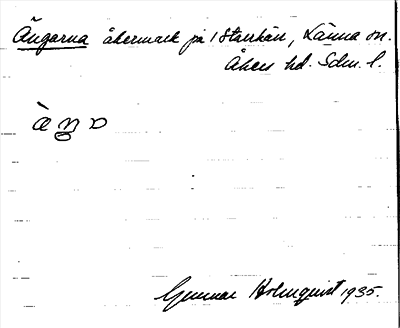 Ängarna åkermark på 1 Stenkan, Länna sn.
Åkers hd. Sdm. l.
Gunnar Holmquist 1935.